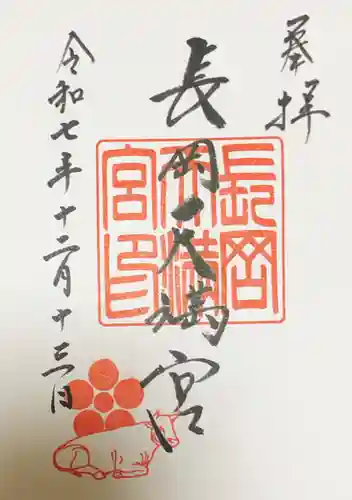 奉拝
長岡天満宮
長岡天満宮印
令和七年十二月十三日